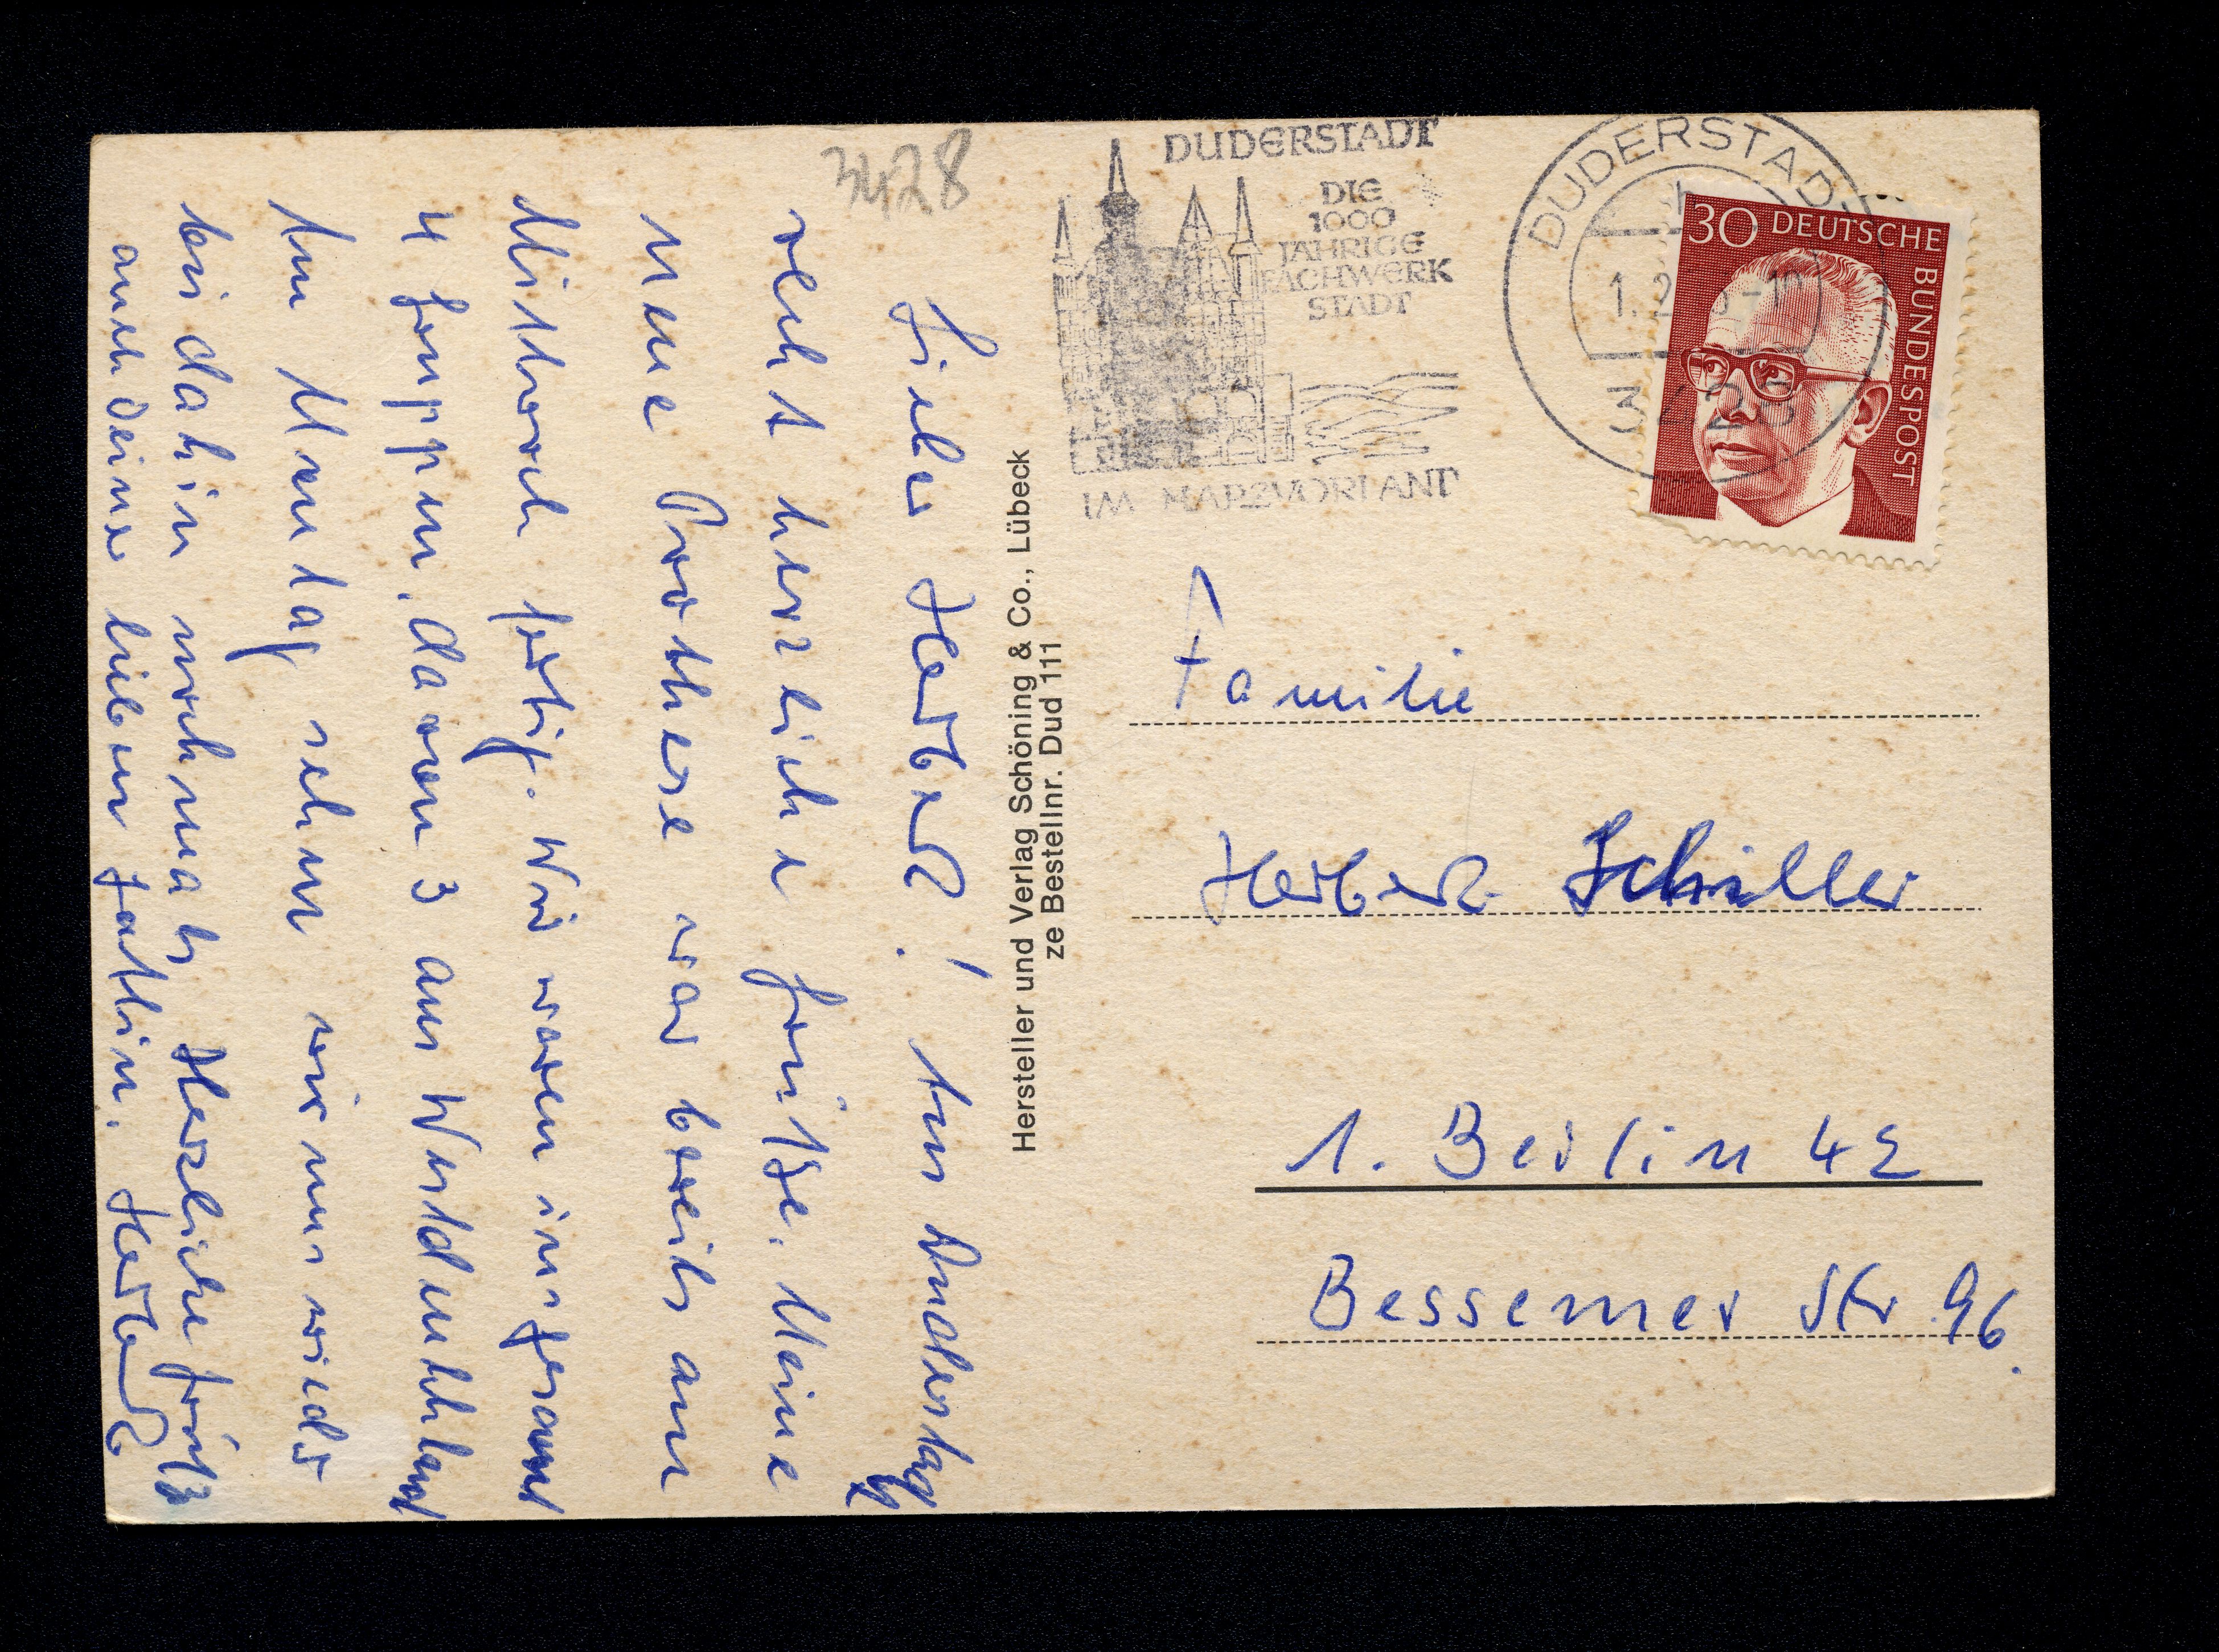 3428
Lieber Herbert! Aus Duderstadt
recht herzliche Grüße. Meine
neue Prothese war bereits am
Mittwoch fertig. Wir waren insgesamt
4 Gruppen, davon 3 aus Westdeutschland
Am Montag sehen wir uns wieder
bis dahin nochmals Herzliche Grüße
auch Deiner lieben Gattin. Herbert
Hersteller und Verlag Schöning & Co., Lübeck
ze Bestellnr. Dud 111
DUDERSTADT
DIE
1000
JÄHRIGE
FACHWERK
STADT
IM HARZVORLAND
DUDERSTADT
3428
30 DEUTSCHE BUNDESPOST
Familie
Herbert Schiller
1. Berlin 42
Bessemer Str. 96.